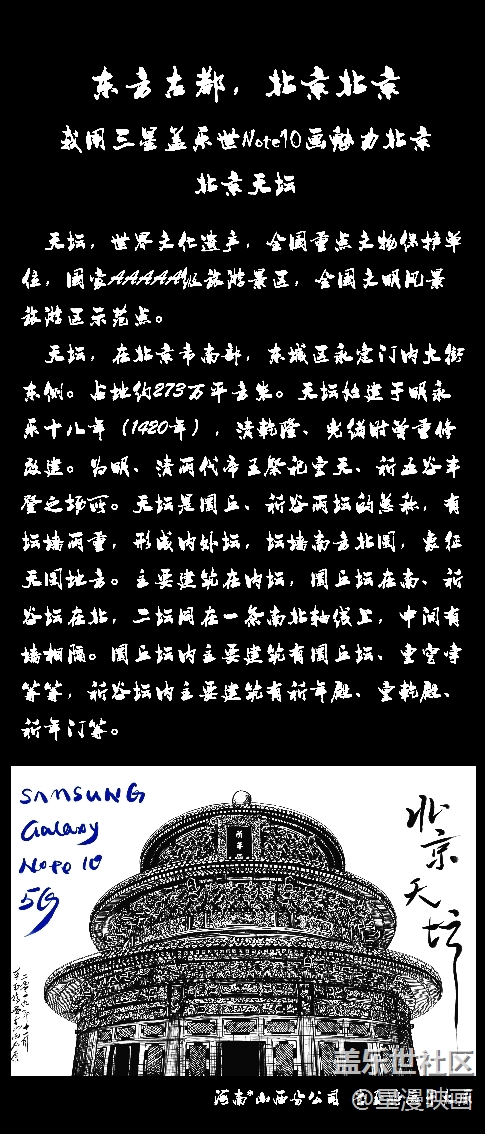 东方古都，北京北京
我用三星盖乐世Note10画魅力北京
北京天坛
天坛，世界文化遗产，全国重点文物保护单
位，国家AAAAA级旅游景区，全国文明风景
旅游区示范点。
天坛，在北京市南部，东城区永定门内大街
东侧。占地约273万平方米。天坛始建于明永
乐十八年（1420年），清乾隆、光绪时曾重修
改建。为明、清两代帝王祭祀皇天、祈五谷丰
登之场所。天坛是圜丘、祈谷两坛的总称，有
坛墙两重，形成内外坛，坛墙南方北圆，象征
天圆地方。主要建筑在内坛，圜丘坛在南、祈
谷坛在北，二坛同在一条南北轴线上，中间有
墙相隔。圜丘坛内主要建筑有圜丘坛、皇穹宇
等等，祈谷坛内主要建筑有祈年殿、皇乾殿、
祈年门等。
SAMSUNG
Galaxy
Note 10
5G
北京天坛
祈年殿
盖乐世社区
河南*山西分公司
@星漫映画